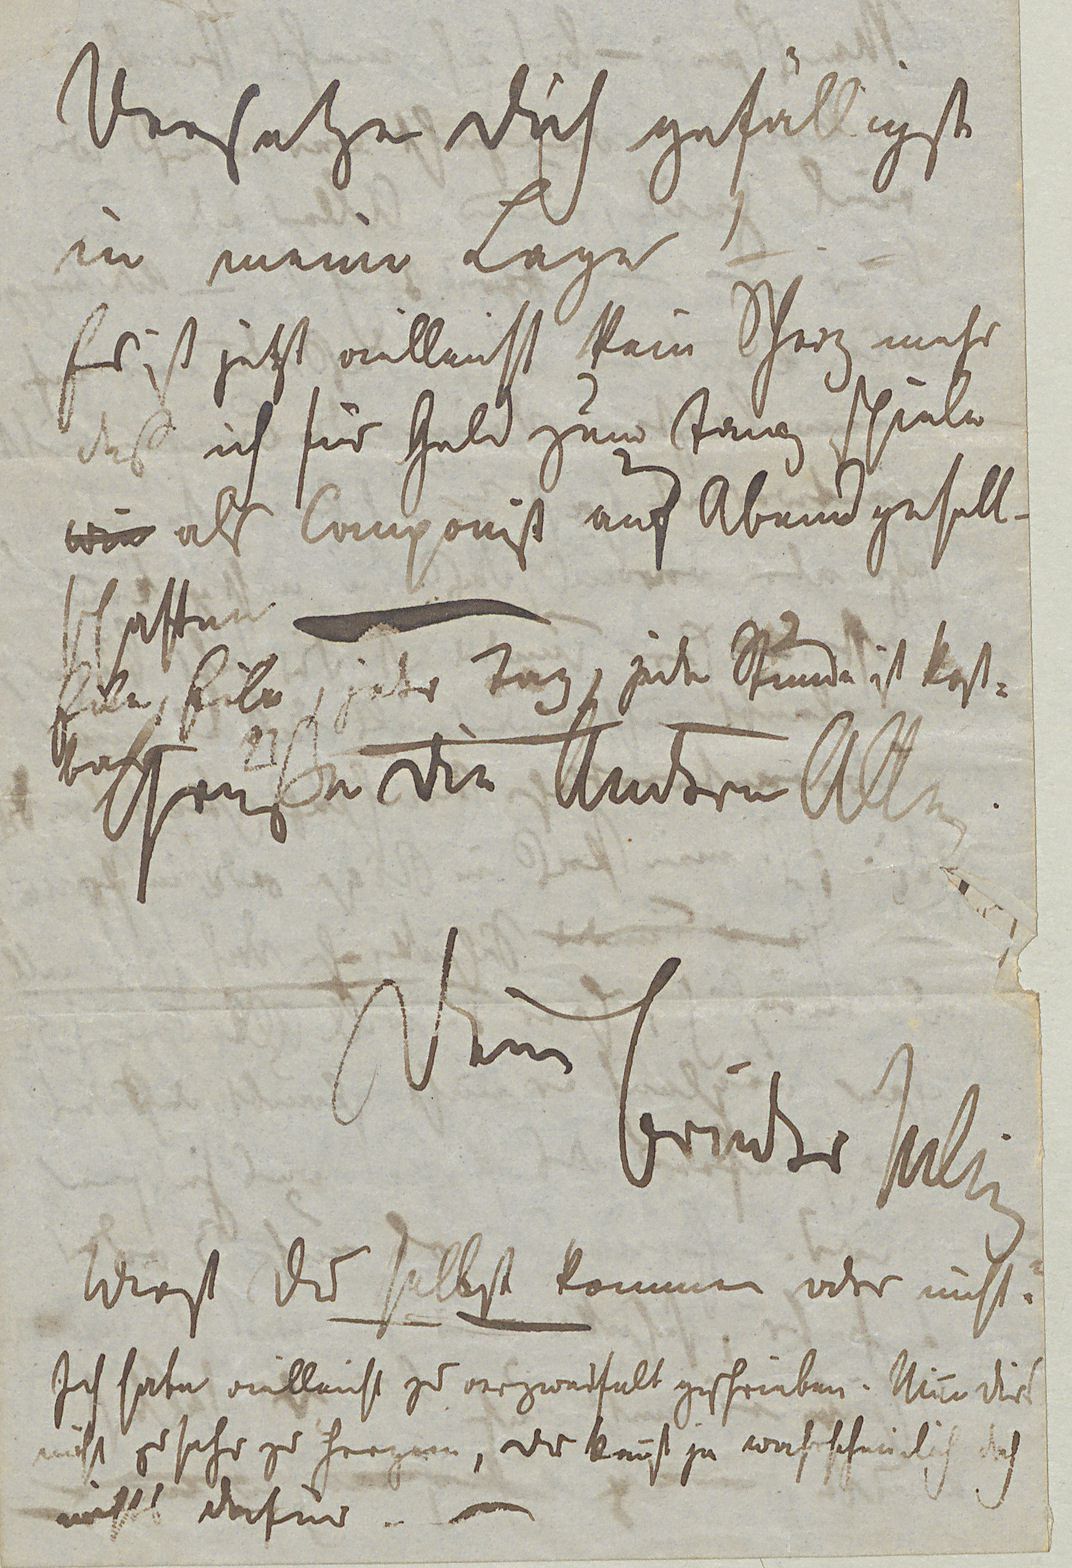 Versetze dich gefälligst
in meine Lage!
Es ist jetzt vielleicht kein Scherz mehr
daß ich für Geld zum Tanz spiele
wie als Componist auf Abendgesell-
schaften
Eile, Eile, jeder Tag, jede Stunde ist kost-
bar Grüße die Andern Alle.
Dein
Bruder
Wirst du selbst kommen oder nicht.
Ich habe vielleicht zu verzweifelt geschrieben. Nimm dirs
nicht zu sehr zu Herzen, du kannst ja wahrscheinlich doch
nichts dafür.. —